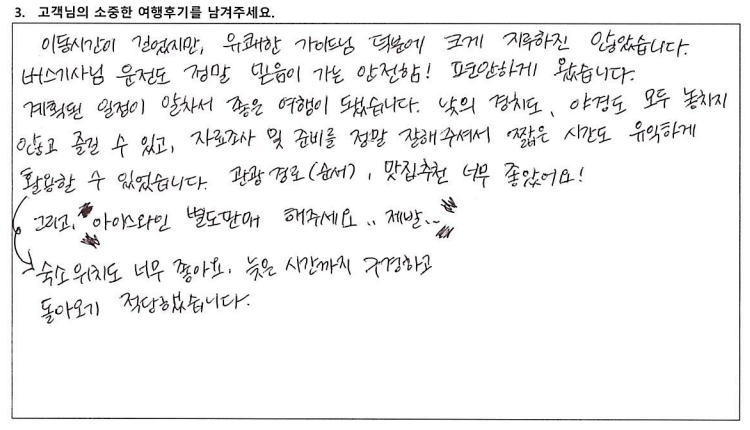 3. 고객님의 소중한 여행후기를 남겨주세요.
이동시간이 길었지만, 유쾌한 가이드님 덕분에 크게 지루하진 않았습니다.
버스기사님 운전도 정말 믿음이 가는 안전함! 편안하게 왔습니다.
계획된 일정이 알차서 좋은 여행이 되었습니다. 낮의 경치도, 야경도 모두 놓치지
않고 즐길 수 있고, 자료조사 및 준비를 정말 잘해주셔서 짧은 시간도 유익하게
활용할 수 있었습니다. 관광 경로(순서), 맛집추천 너무 좋았어요!
그리고, 아이스와인 별도판매 해주세요.. 제발..
숙소위치도 너무 좋아요. 늦은 시간까지 구경하고
돌아오기 적당했습니다.